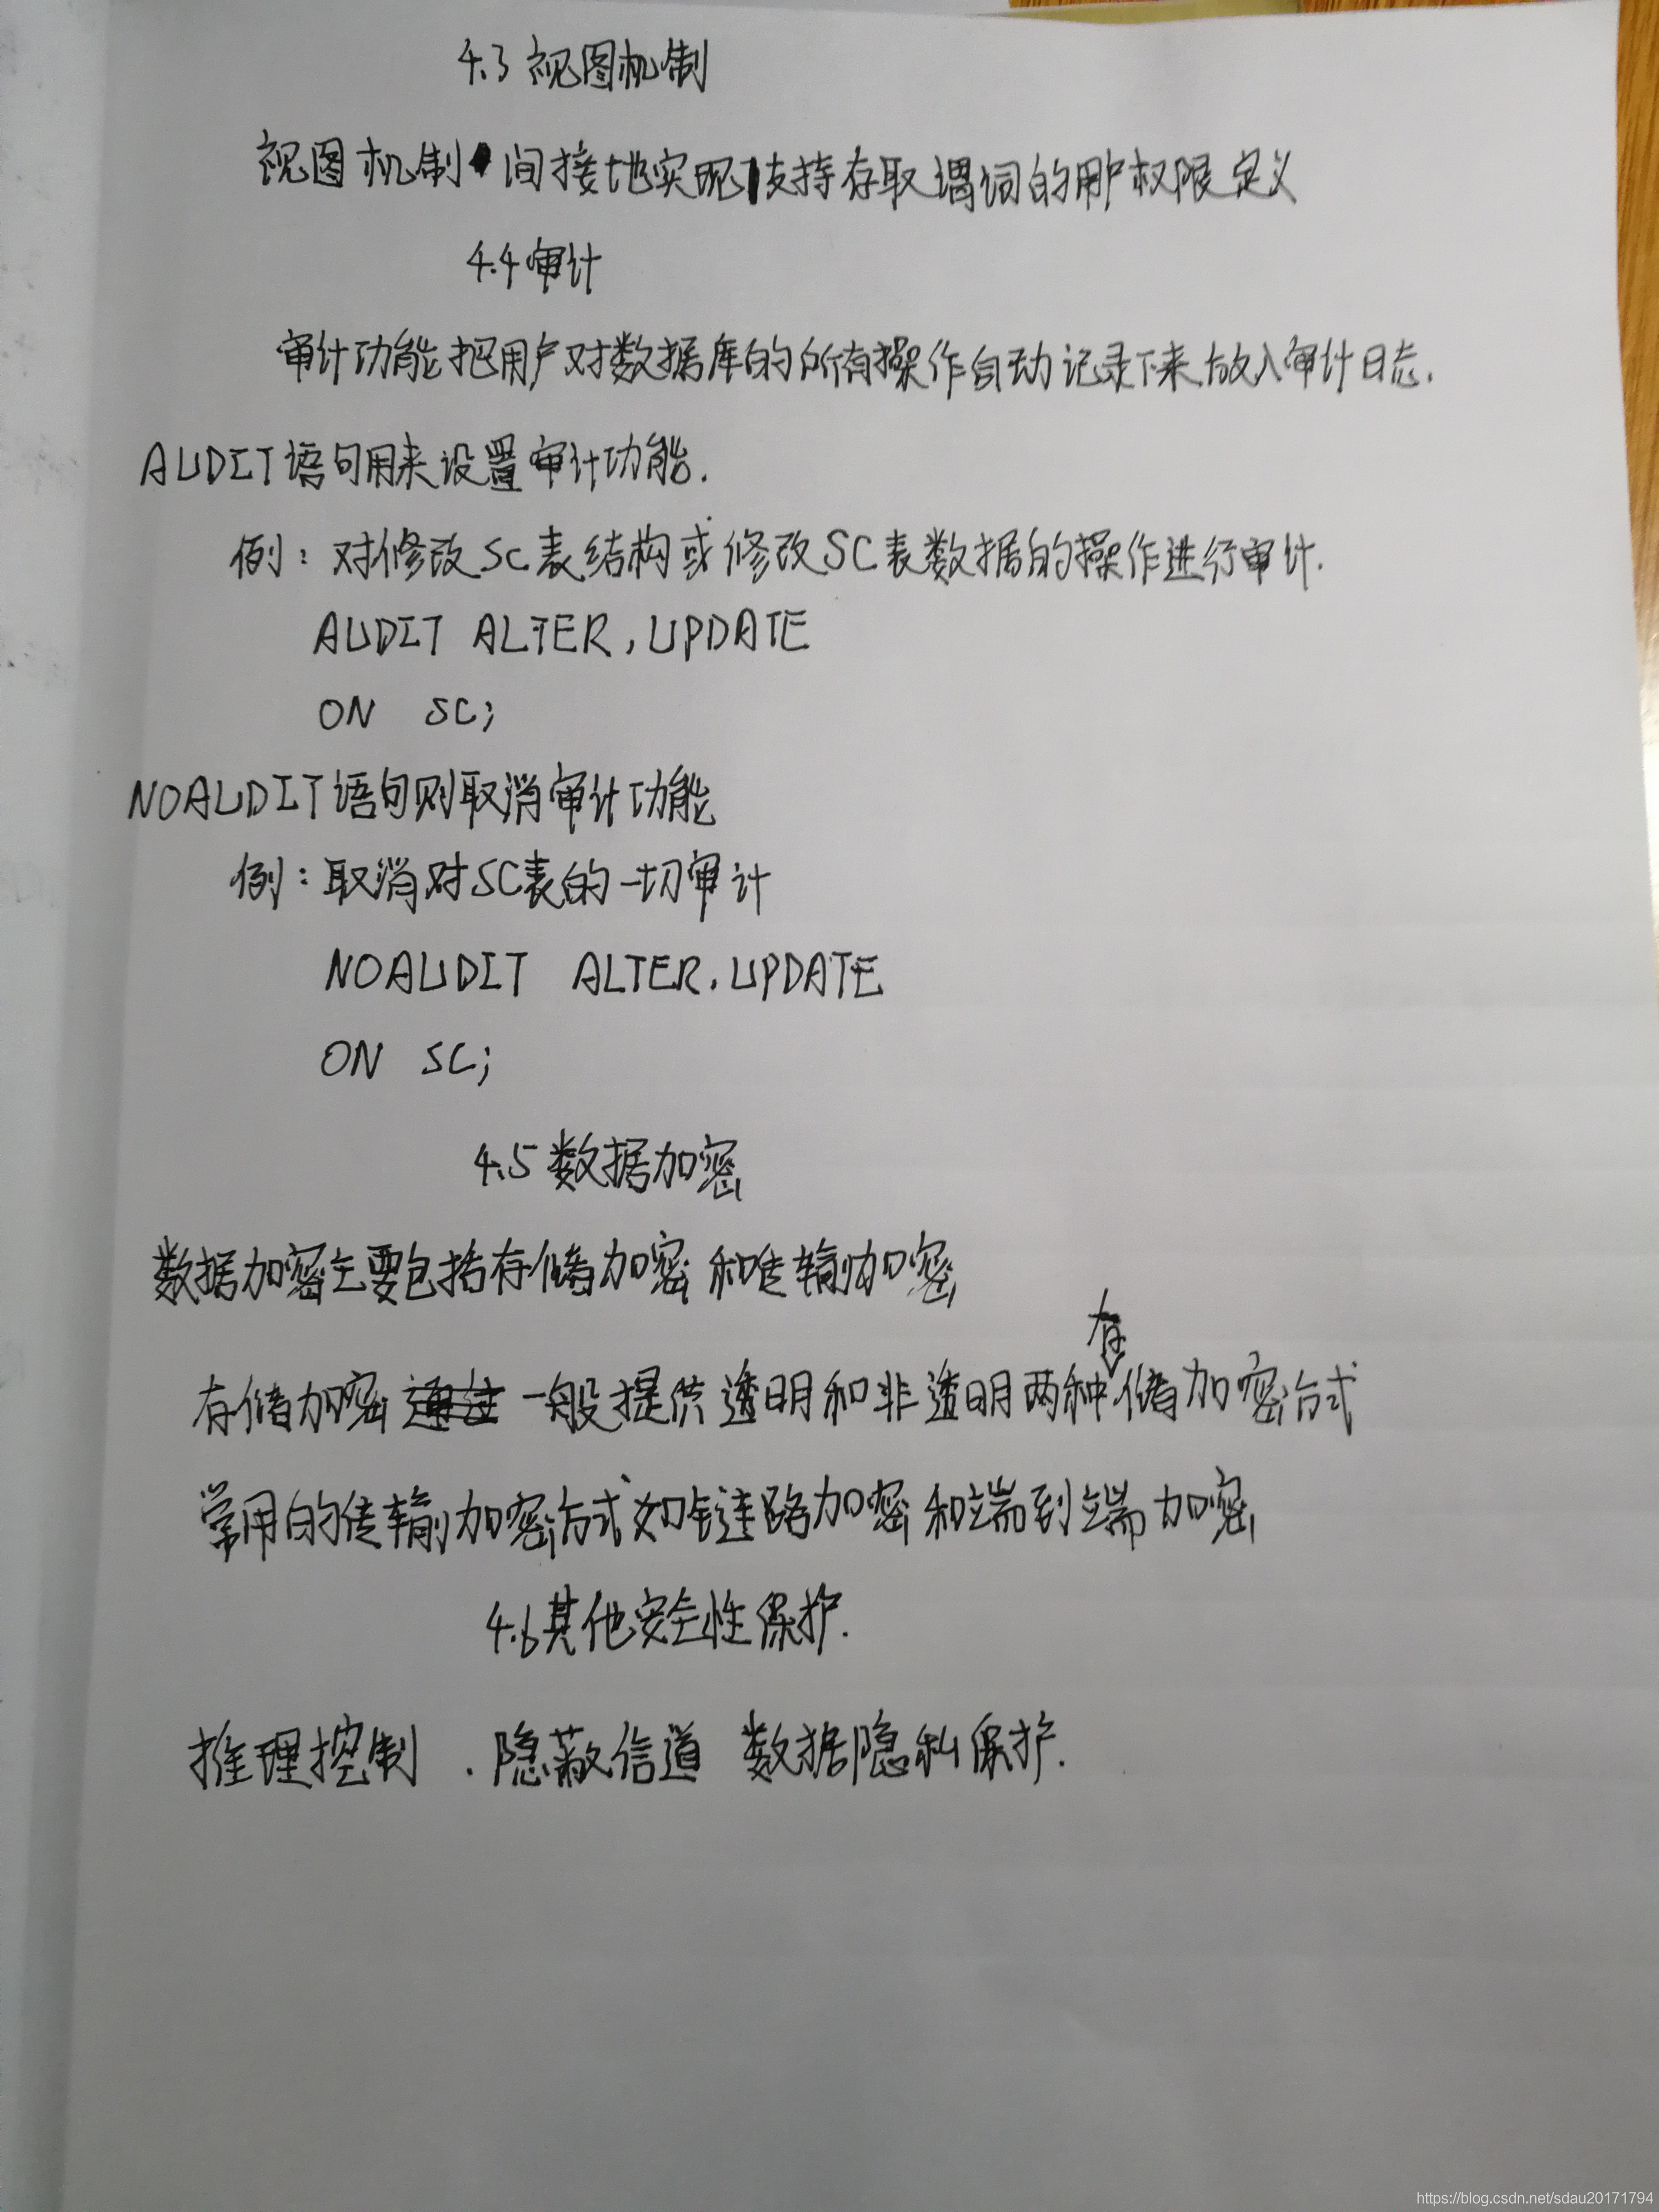 4.3 视图机制
视图机制间接地实现支持存取谓词的用户权限定义
4.4 审计
审计功能把用户对数据库的所有操作自动记录下来放入审计日志.
AUDIT语句用来设置审计功能.
例：对修改SC表结构或修改SC表数据的操作进行审计.
AUDIT ALTER,UPDATE
ON SC;
NOAUDIT语句则取消审计功能
例：取消对SC表的一切审计
NOAUDIT ALTER,UPDATE
ON SC;
4.5 数据加密
数据加密主要包括存储加密和传输加密
存储加密 一般提供透明和非透明两种存储加密方式
常用的传输加密方式如链路加密和端到端加密
4.6 其他安全性保护.
推理控制 . 隐蔽信道 数据隐私保护.
https://blog.csdn.net/sdau20171794